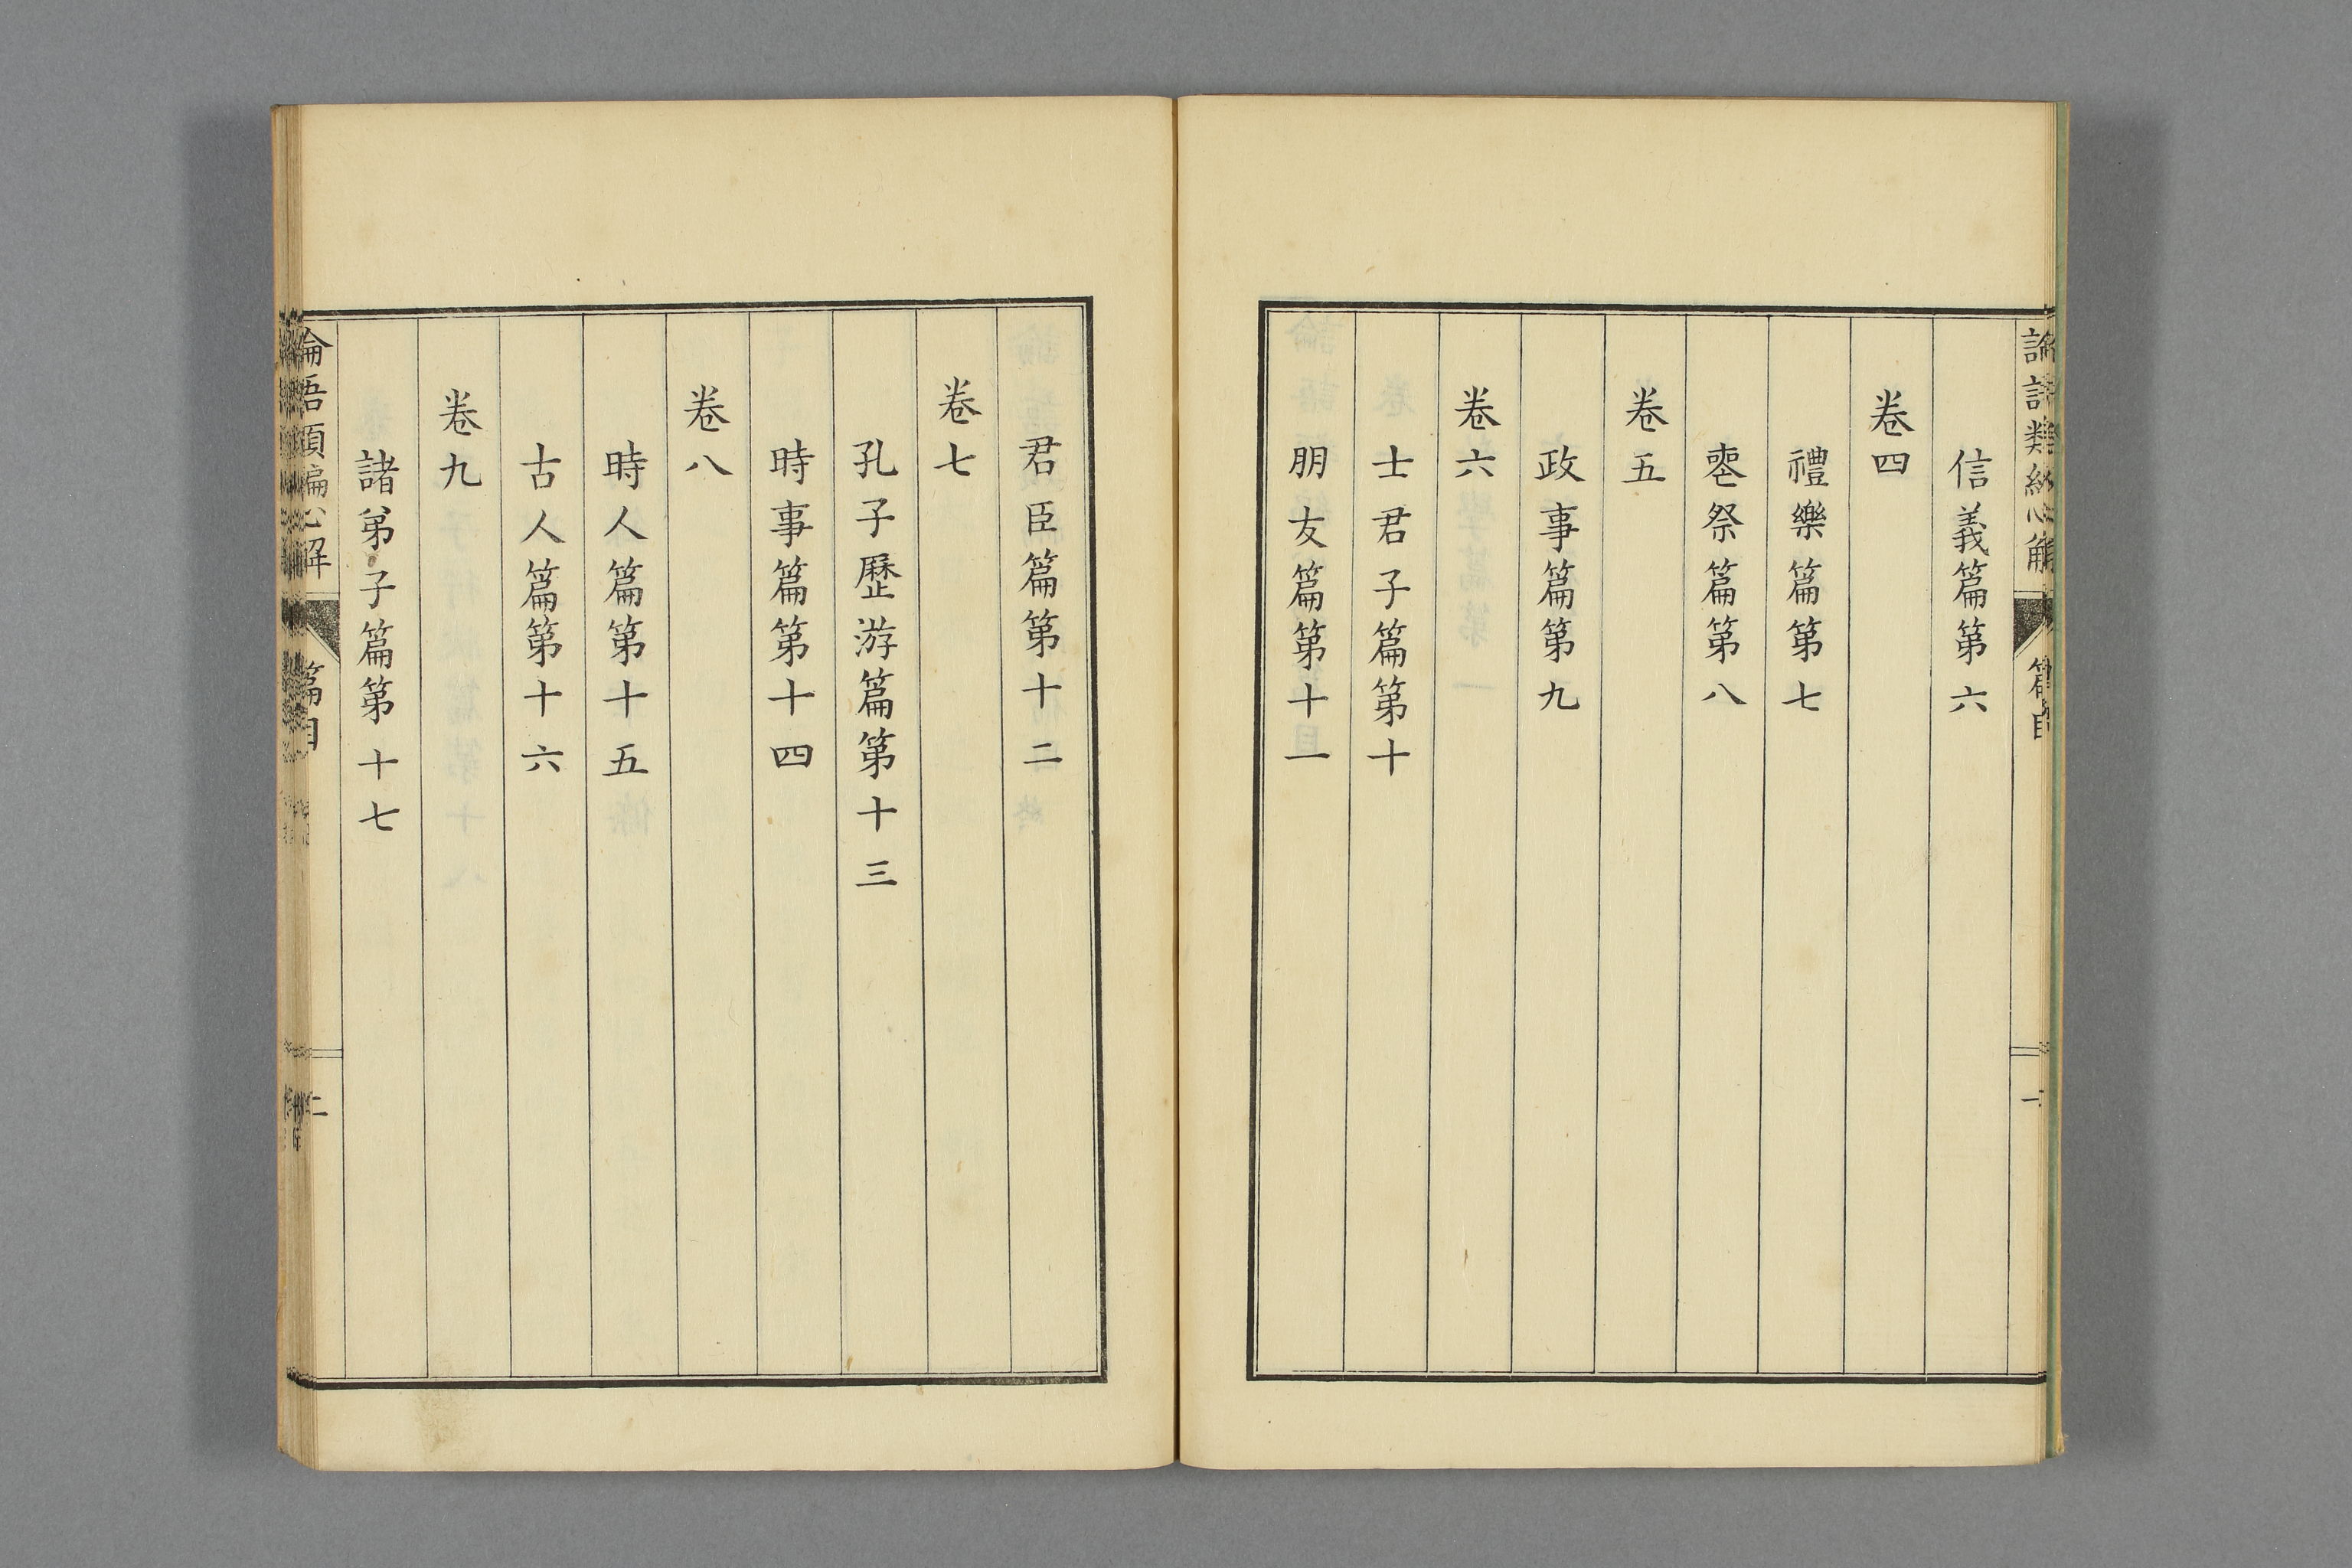 信義篇第六
卷四
禮樂篇第七
喪祭篇第八
卷五
政事篇第九
卷六
士君子篇第十
朋友篇第十一
篇目
一
君臣篇第十二
卷七
孔子歷游篇第十三
時事篇第十四
卷八
時人篇第十五
古人篇第十六
卷九
諸弟子篇第十七
篇目
二